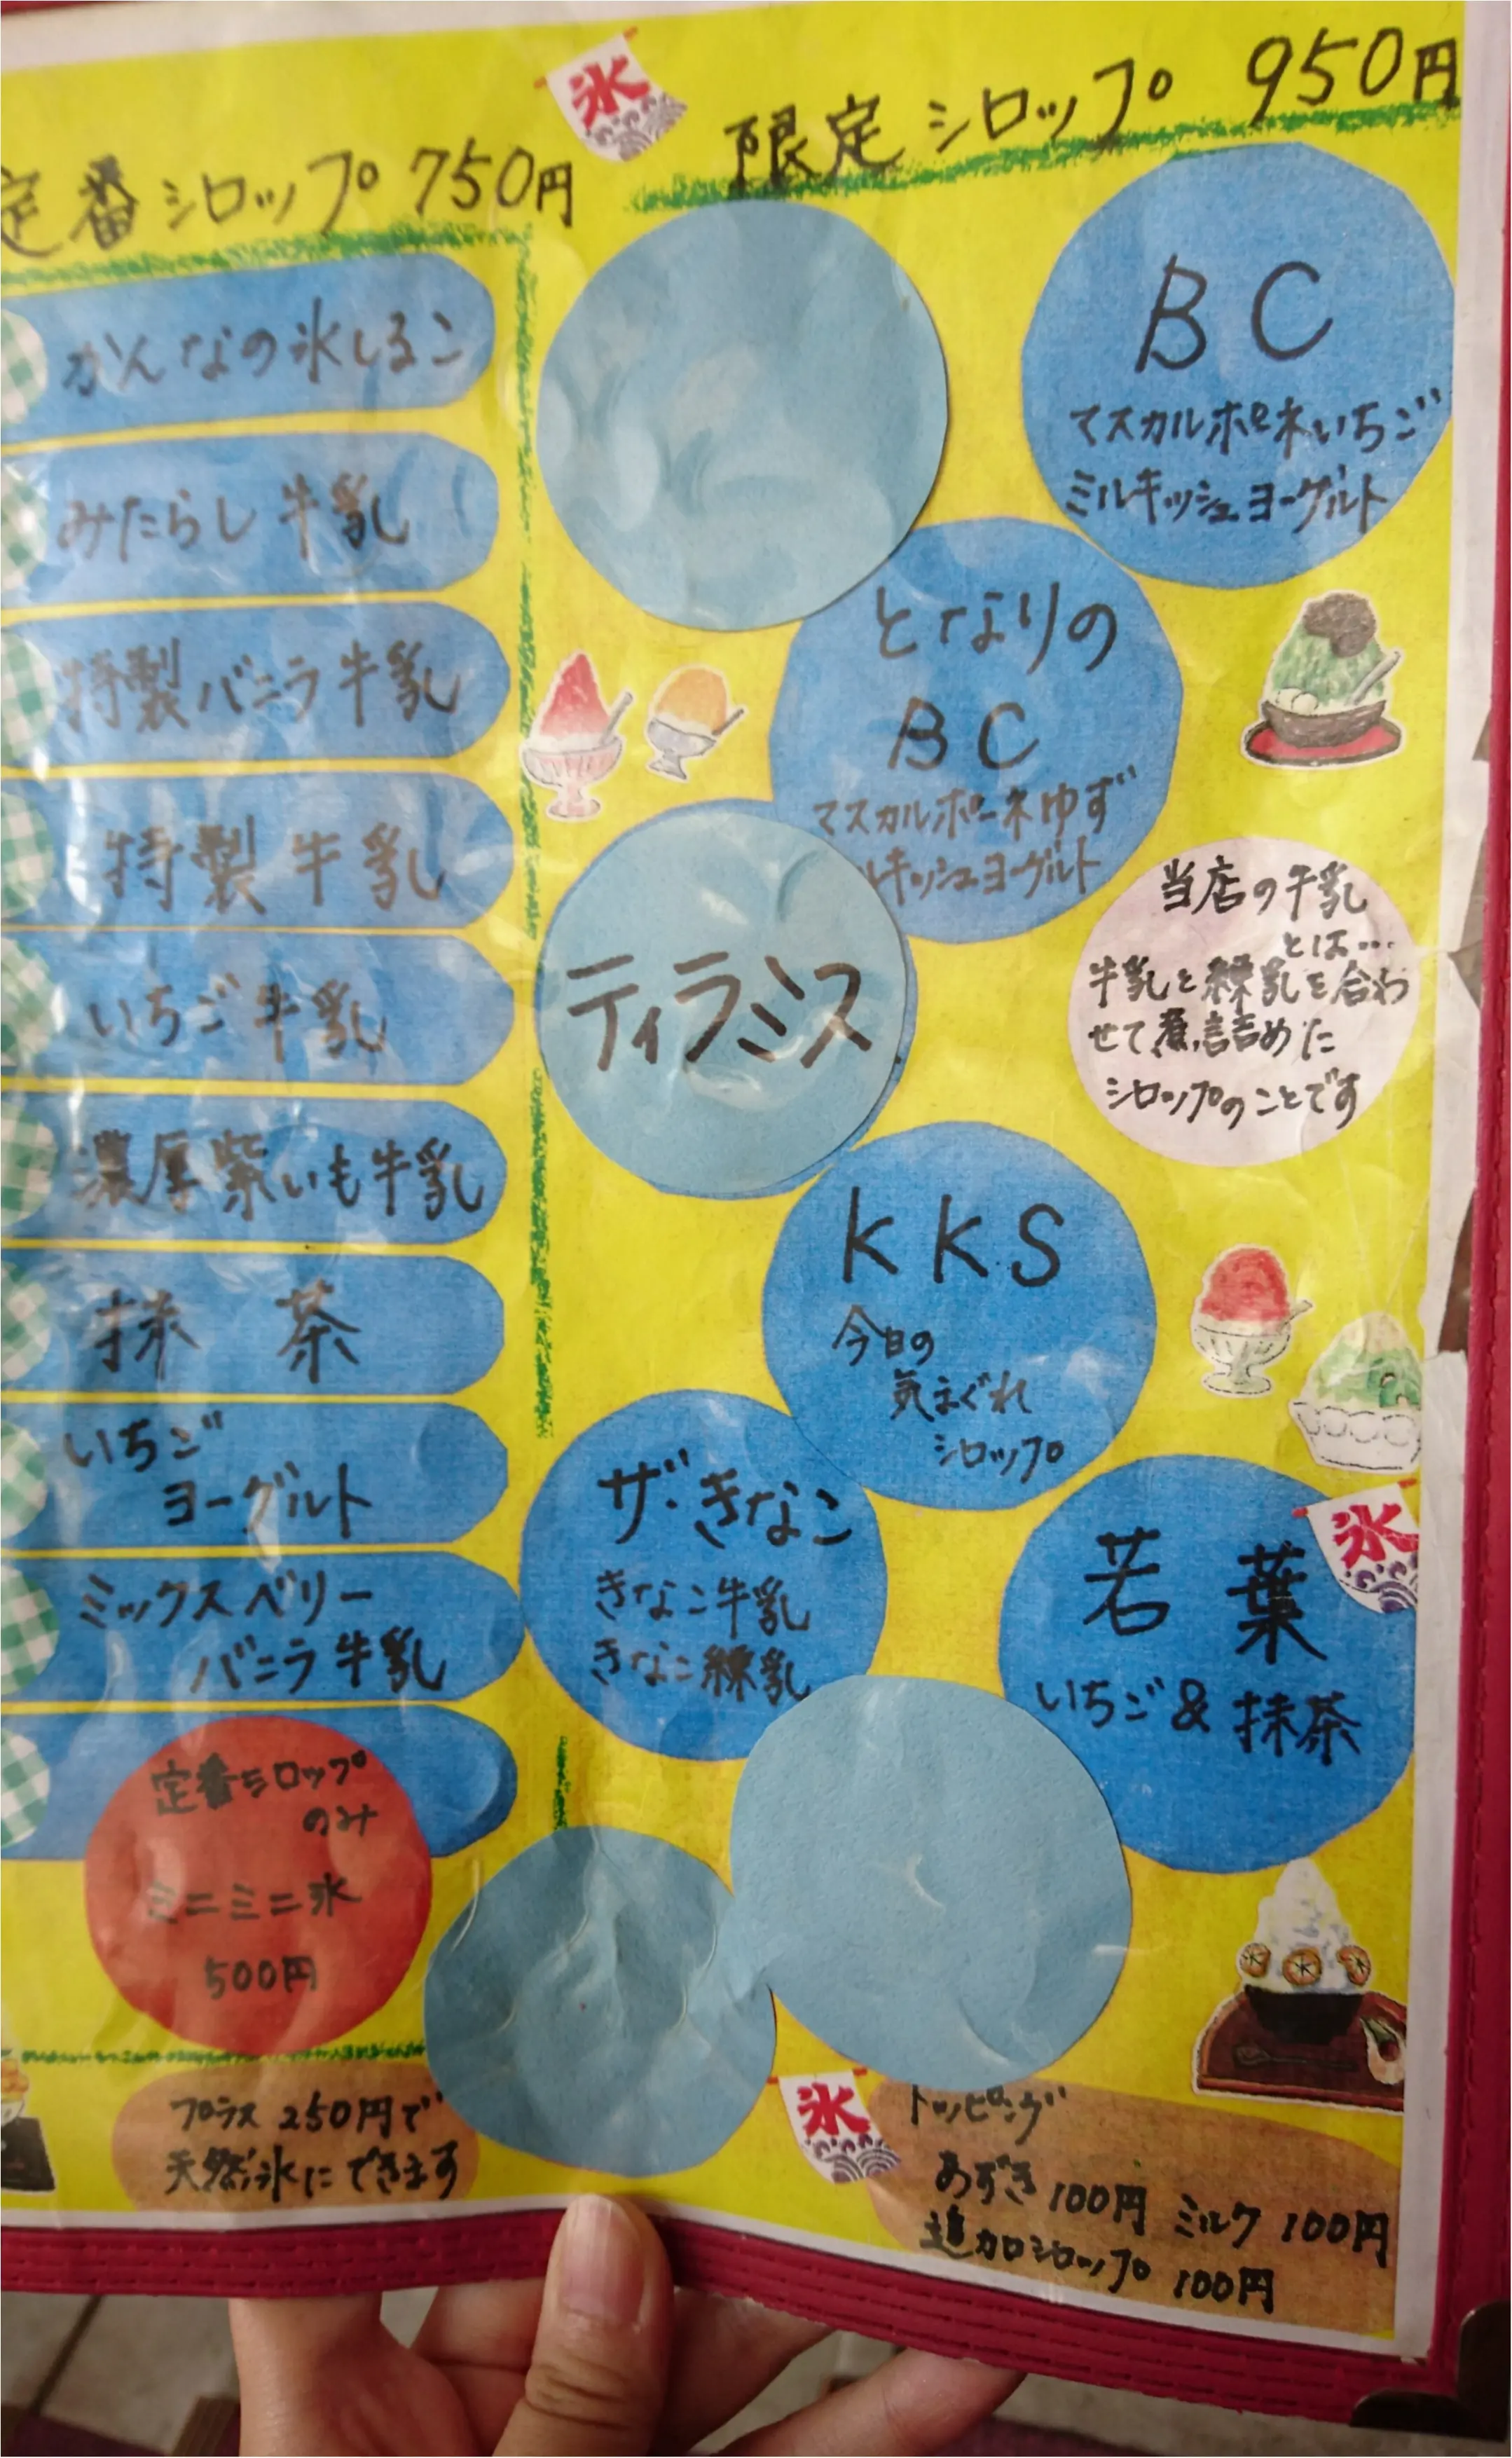 定番シロップ 750円
かんなの氷しるこ
みたらし牛乳
特製バニラ牛乳
特製牛乳
いちご牛乳
濃厚紫いも牛乳
抹茶
いちご
ヨーグルト
ミックスベリー
バニラ牛乳
定番シロップ
のみ
ミニミニ氷
500円
プラス250円で
天然氷にできます
氷
限定シロップ 950円
BC
マスカルポーネいちご
ミルキッシュヨーグルト
となりの
BC
マスカルポーネゆず
ルキッシュヨーグルト
ティラミス
当店の牛乳
とは…
牛乳と練乳を合わ
せて煮詰めた
シロップのことです
KKS
今日の
気まぐれ
シロップ
ザ・きなこ
きなこ牛乳
きなこ練乳
氷
若葉
いちご&抹茶
氷
トッピング
あずき 100円 ミルク 100円
追加シロップ 100円